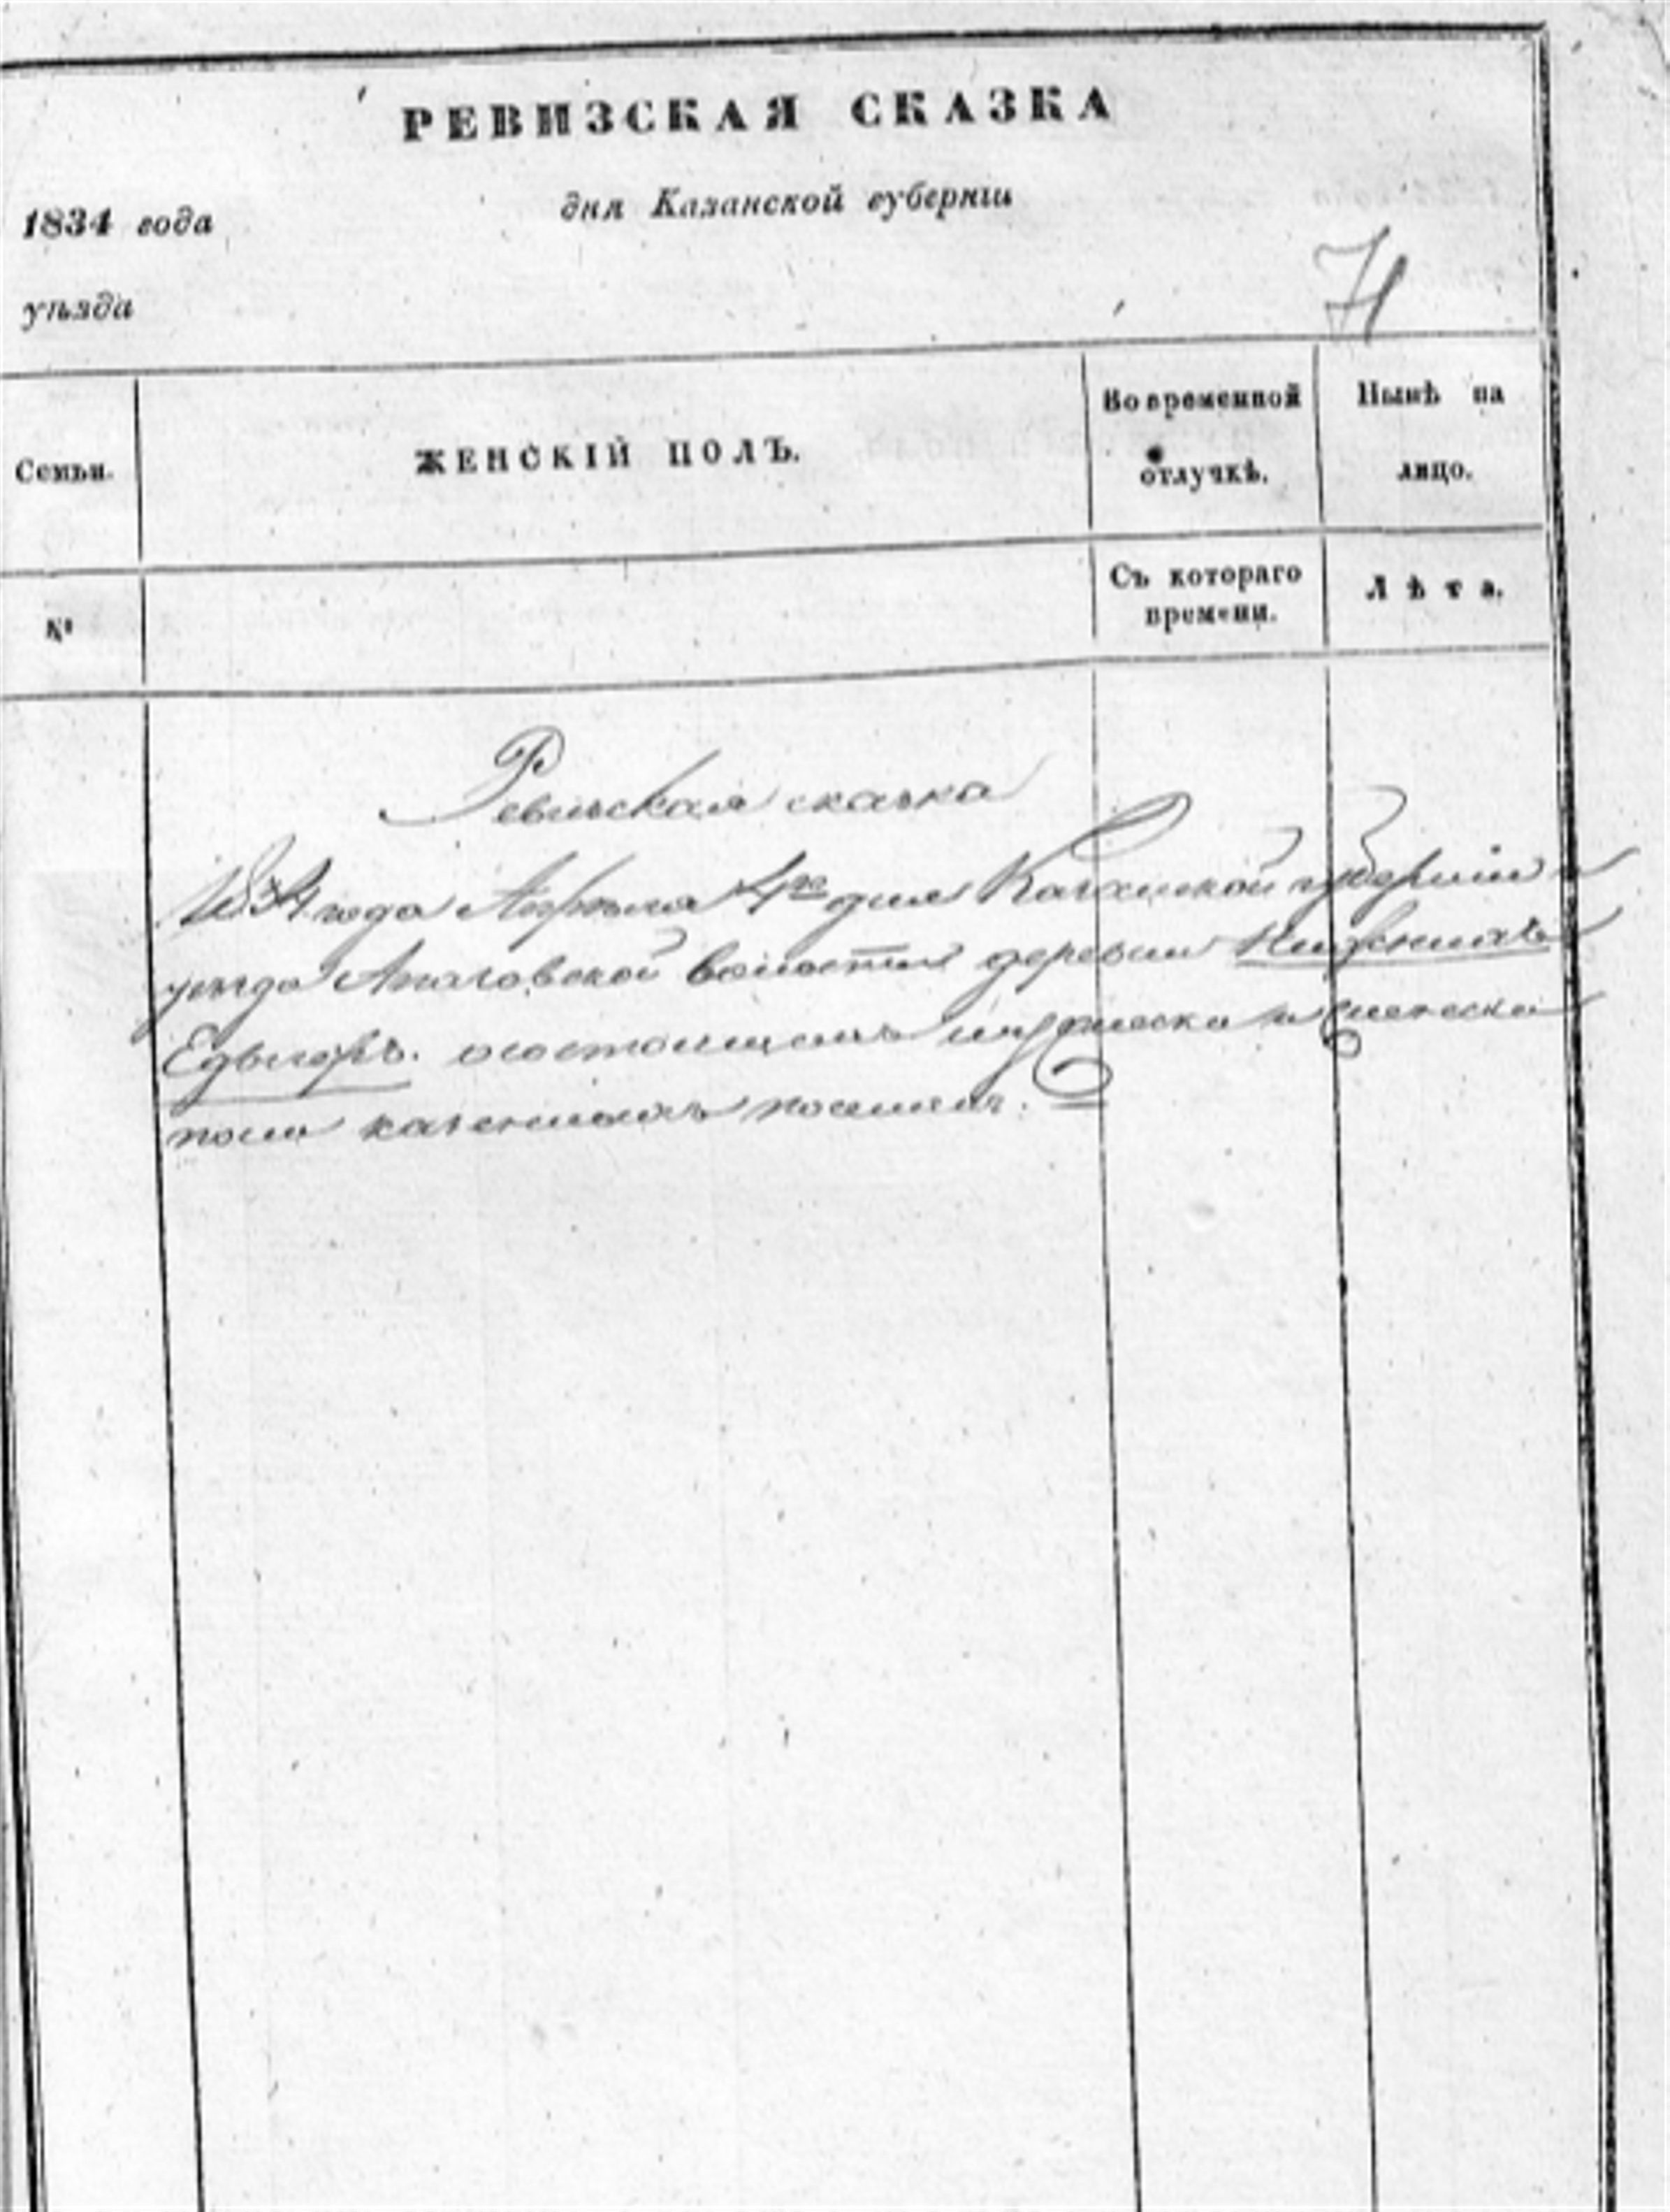 РЕВИЗСКАЯ СКАЗКА
1834 года дня Казанской губерніи
уѣзда
71
Семьи. ЖЕНСКІЙ ПОЛЪ. Во временной отлучкѣ. Нынѣ на лицо.
№ Съ котораго времени. Лѣта.
Ревизская сказка
1834 года Апрѣля 4го дня Казанской губерніи
уезда Апазовской волости деревни Нижнихъ
Едыгеръ. о состоящихъ мужеска и женска
пола казенныхъ